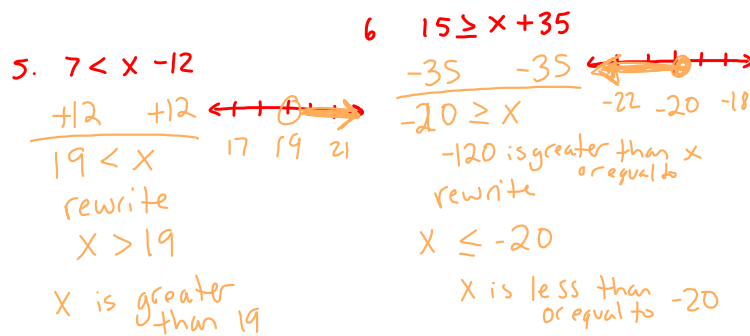 5. 7 < x - 12
+12 +12
19 < x
rewrite
x > 19
x is greater than 19
17 19 21
6 15 ≥ x + 35
-35 -35
-20 ≥ x
-120 is greater than x
or equal to
rewrite
x ≤ -20
x is less than
or equal to -20
-22 -20 -18